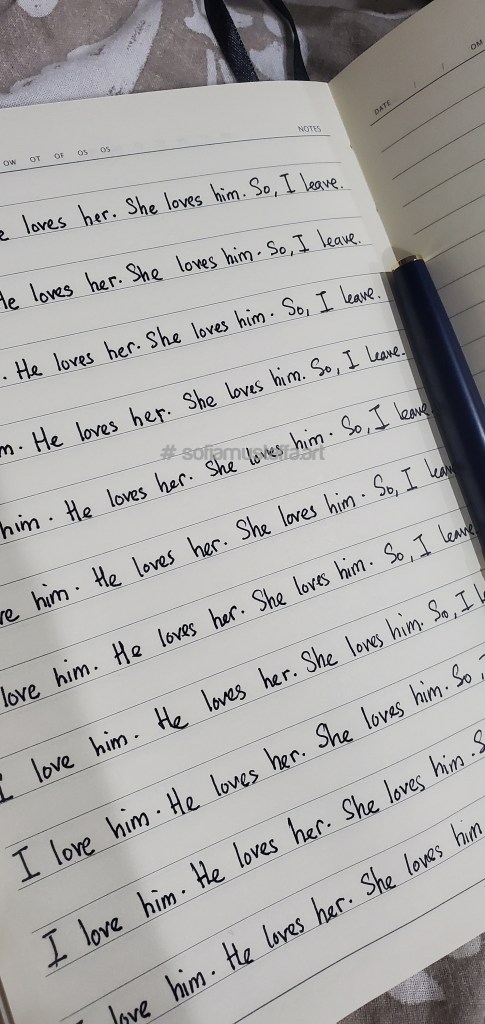 OW OT OF OS OS NOTES
DATE / / OM
loves her. She loves him. So, I leave.
He loves her. She loves him. So, I leave.
. He loves her. She loves him. So, I leave.
m. He loves her. She loves him. So, I leave.
him. He loves her. She loves him. So, I leave
# sofiamustaffa.art
ve him. He loves her. She loves him. So, I leave
love him. He loves her. She loves him. So, I leave
I love him. He loves her. She loves him. So, I l
I love him. He loves her. She loves him. So,
I love him. He loves her. She loves him. S
I love him. He loves her. She loves him